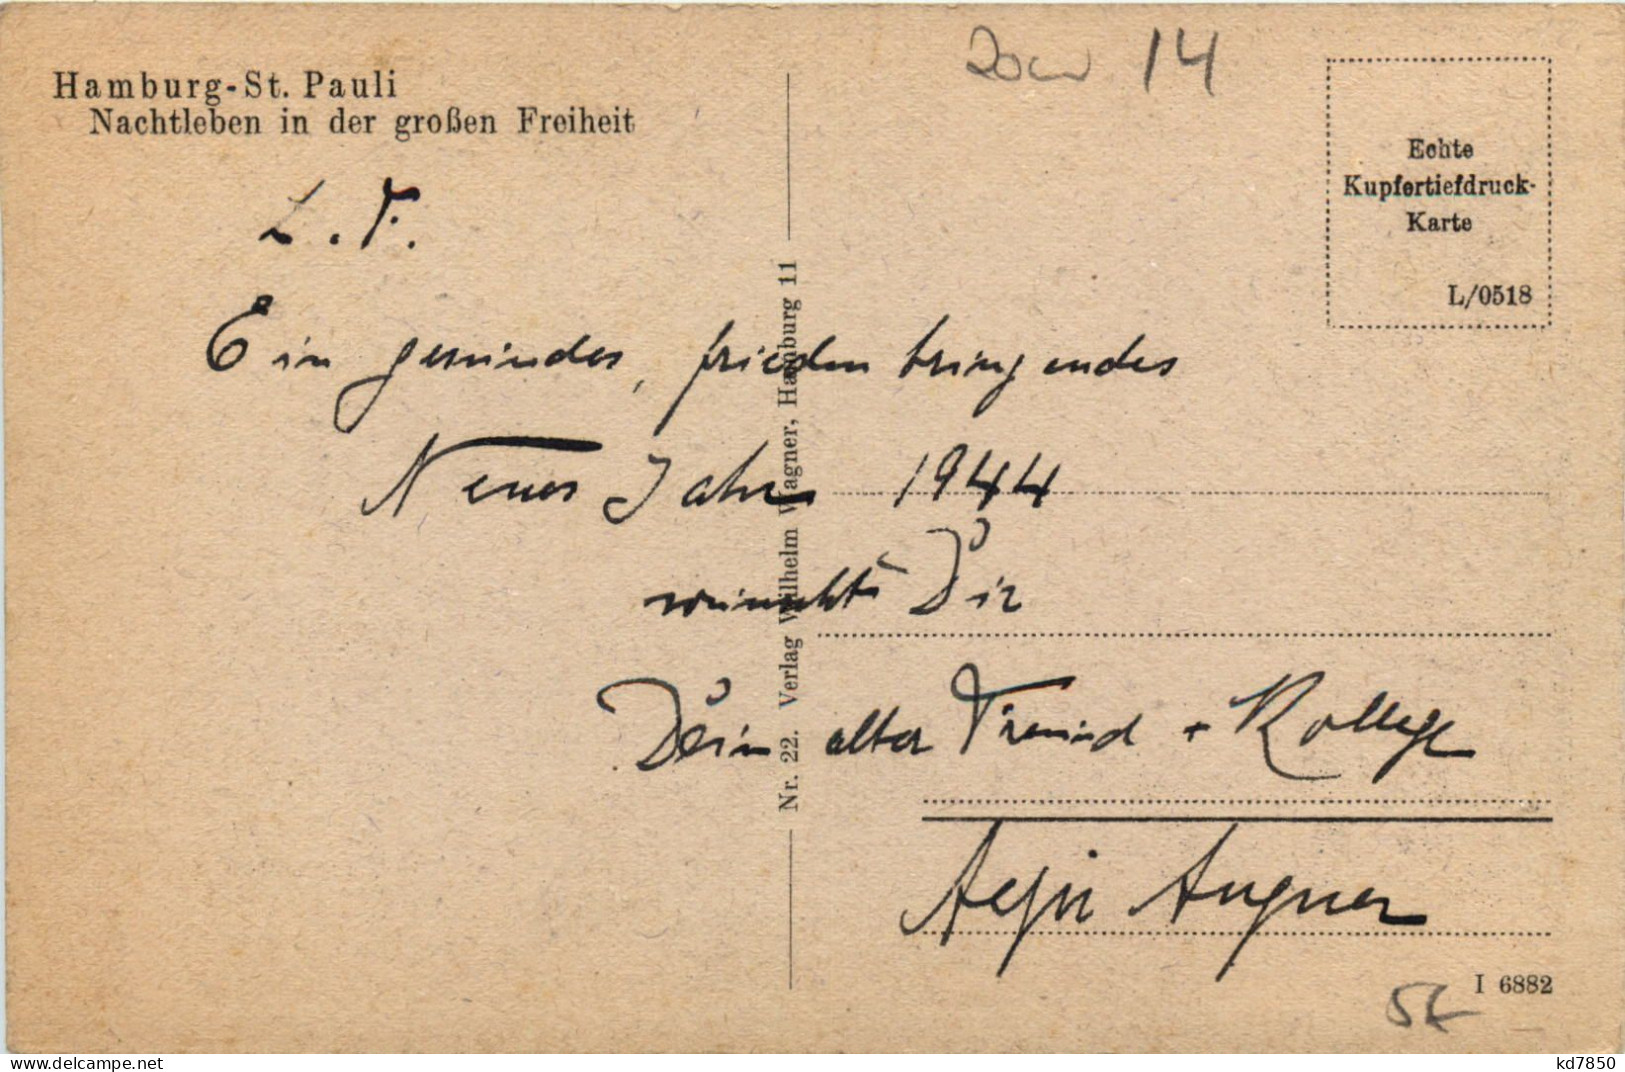 Hamburg-St. Pauli
Nachtleben in der großen Freiheit
14
Echte
Kupfertiefdruck-
Karte
L/0518
L. F.
Ein gesundes, frieden bringendes
Neues Jahr 1944
wünscht Dir
Dein alter Freund + Kollege
Augner
Nr. 22. Verlag Wilhelm Wagner, Hamburg 11
I 6882
www.delcampe.net
kd7850